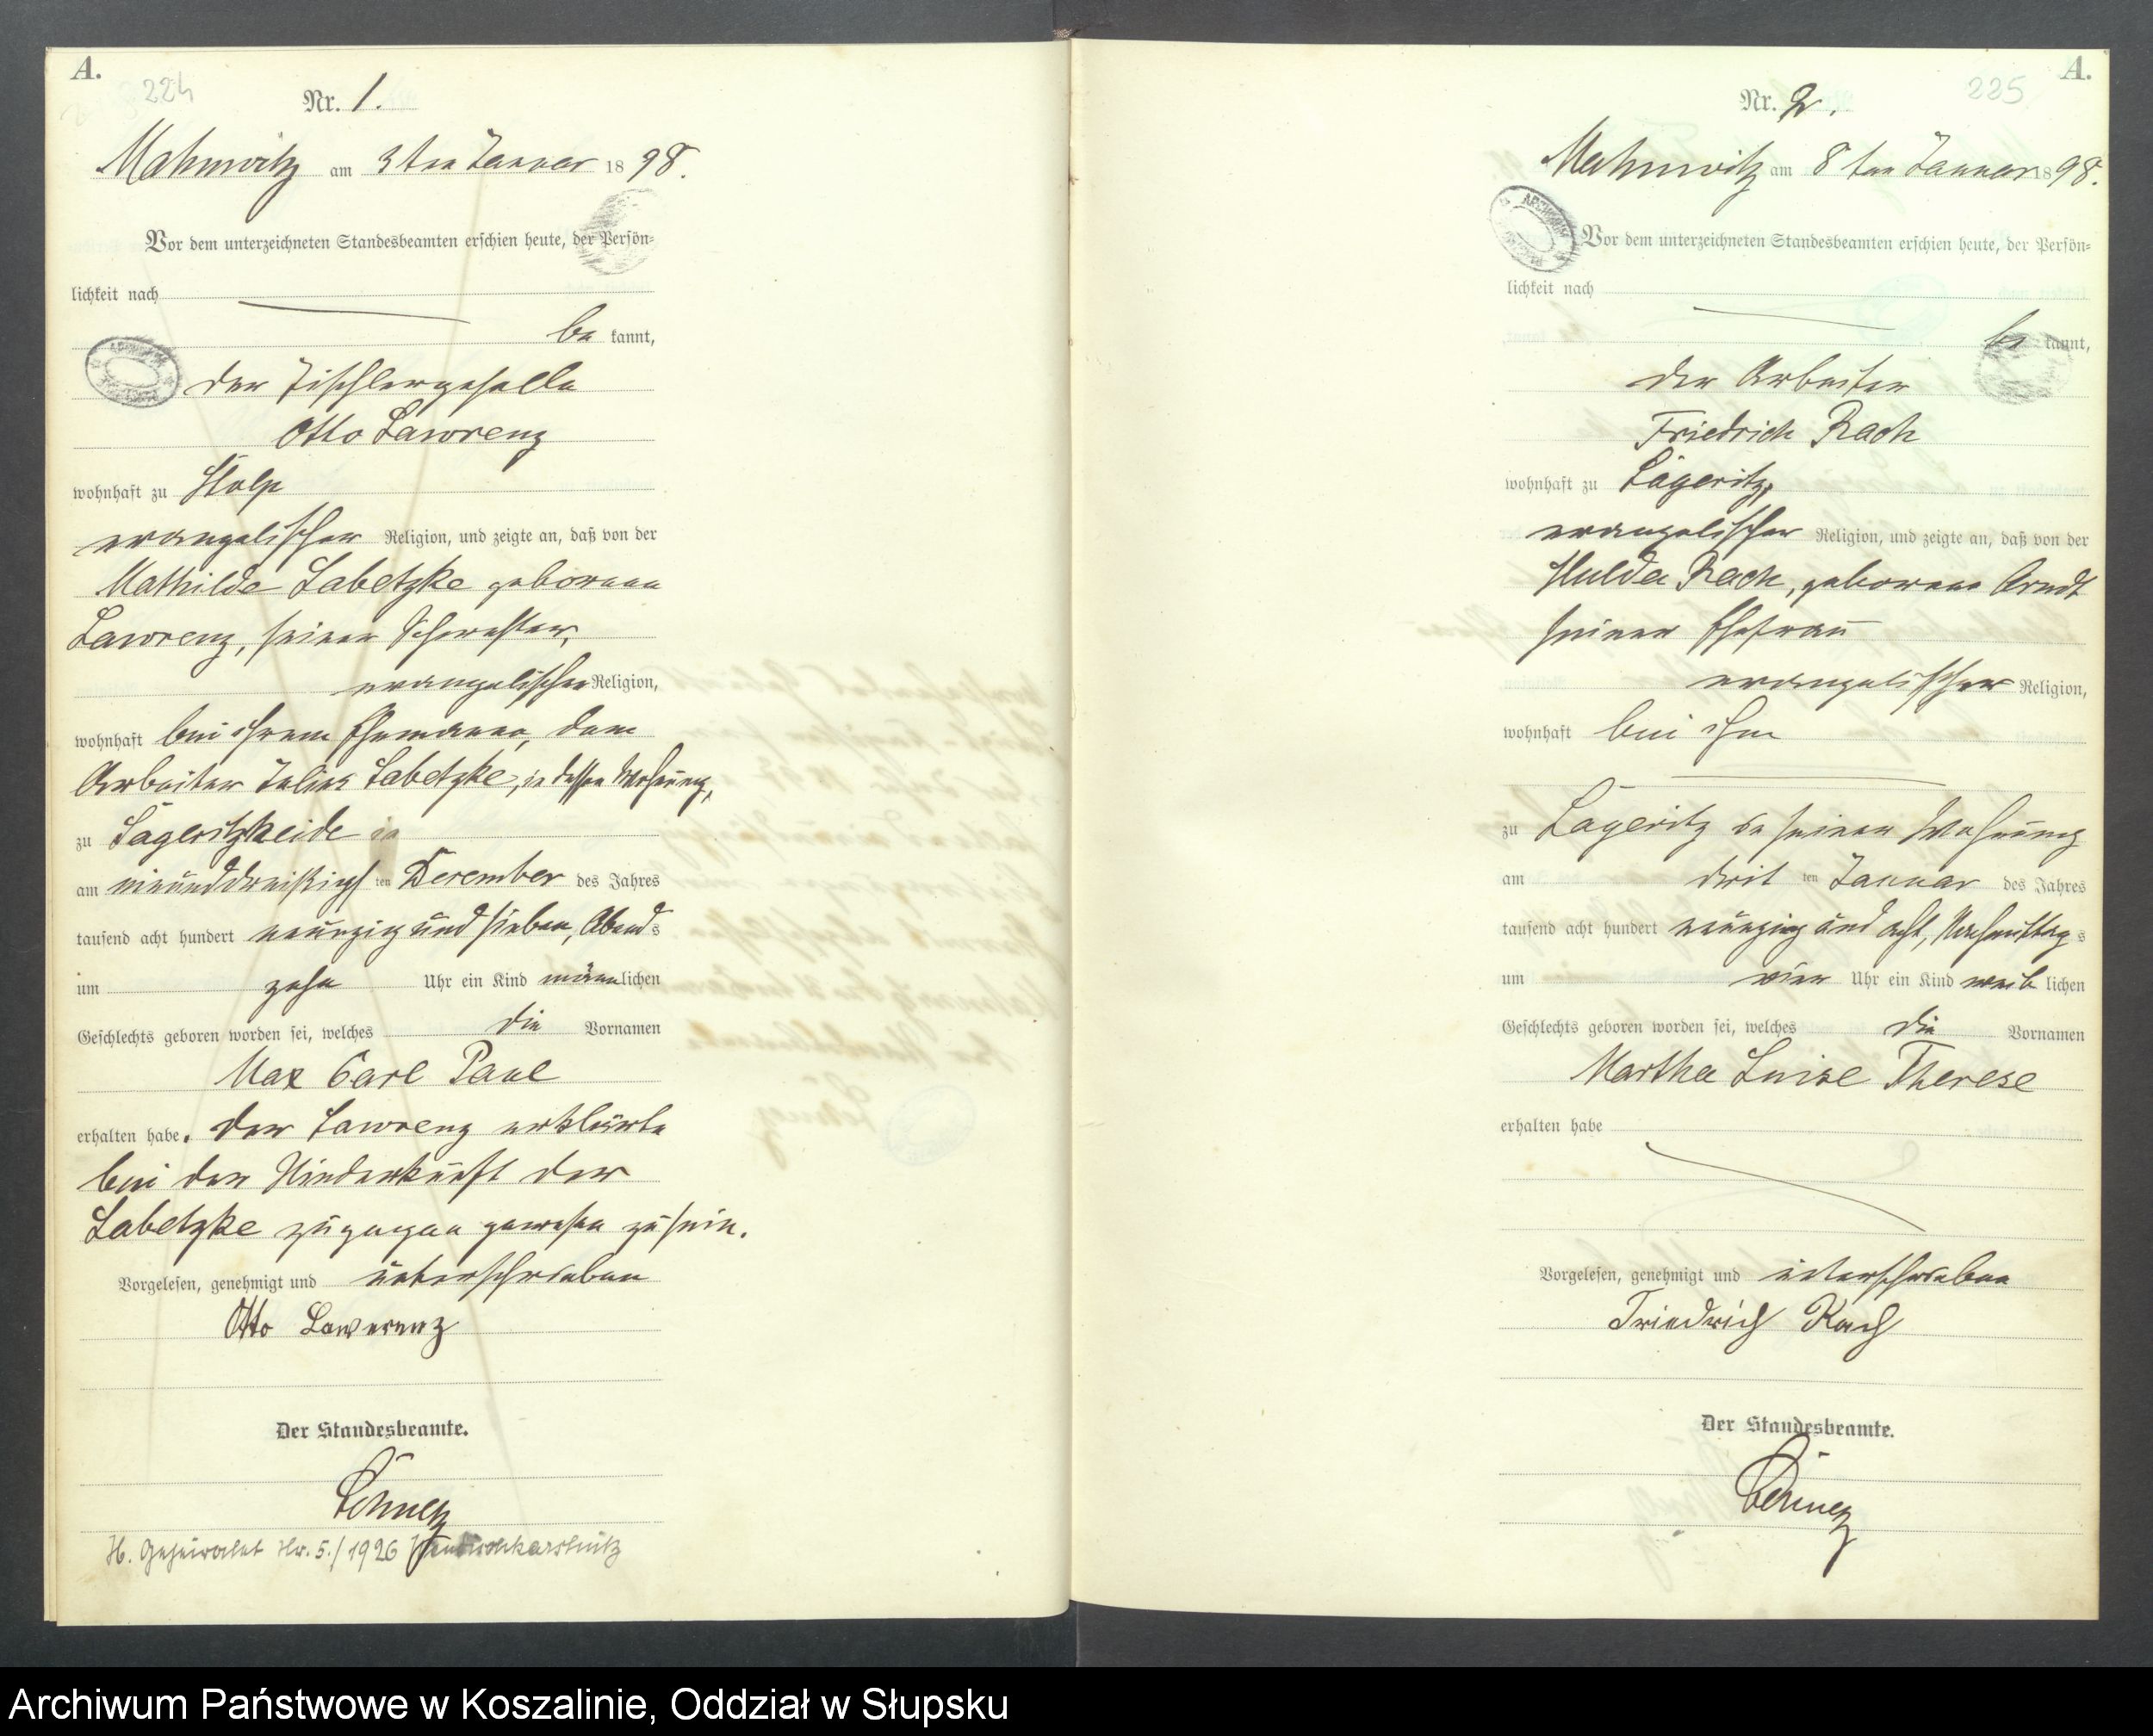 A.
224
Nr. 1.
Mahnwitz am 3ten Januar 1898.
Vor dem unterzeichneten Standesbeamten erschien heute, der Persön=
lichkeit nach
be kannt,
der Tischlergeselle
Otto Lawrenz
wohnhaft zu Stolp
evangelischer Religion, und zeigte an, daß von der
Mathilde Labetzke geborene
Lawrenz, seiner Schwester,
evangelischer Religion,
wohnhaft bei ihrem Ehemanne, dem
Arbeiter Julius Labetzke, in dessen Wohnung,
zu Lageritzheide in
am neunundzwanzigsten December des Jahres
tausend acht hundert neunzig und sieben, Abends
um zehn Uhr ein Kind männlichen
Geschlechts geboren worden sei, welches die Vornamen
Max Carl Paul
erhalten habe. Der Lawrenz erklärte
bei der Niederkunft der
Labetzke zugegen gewesen zu sein.
Vorgelesen, genehmigt und unterschrieben
Otto Lawerenz
Der Standesbeamte.
H. Geheiratet Nr. 5./1926 Wendischkarstnitz
A.
225
Nr. 2.
Mahnwitz am 8ten Januar 1898.
Vor dem unterzeichneten Standesbeamten erschien heute, der Persön=
lichkeit nach
be kannt,
der Arbeiter
Friedrich Rach
wohnhaft zu Lageritz,
evangelischer Religion, und zeigte an, daß von der
Hulda Rach, geborene Arndt
seiner Ehefrau
evangelischer Religion,
wohnhaft bei ihm
zu Lageritz in seiner Wohnung
am dritten Januar des Jahres
tausend acht hundert neunzig und acht, Nachmittags
um vier Uhr ein Kind weiblichen
Geschlechts geboren worden sei, welches die Vornamen
Martha Luise Therese
erhalten habe
Vorgelesen, genehmigt und unterschrieben
Friedrich Rach
Der Standesbeamte.
Archiwum Państwowe w Koszalinie, Oddział w Słupsku